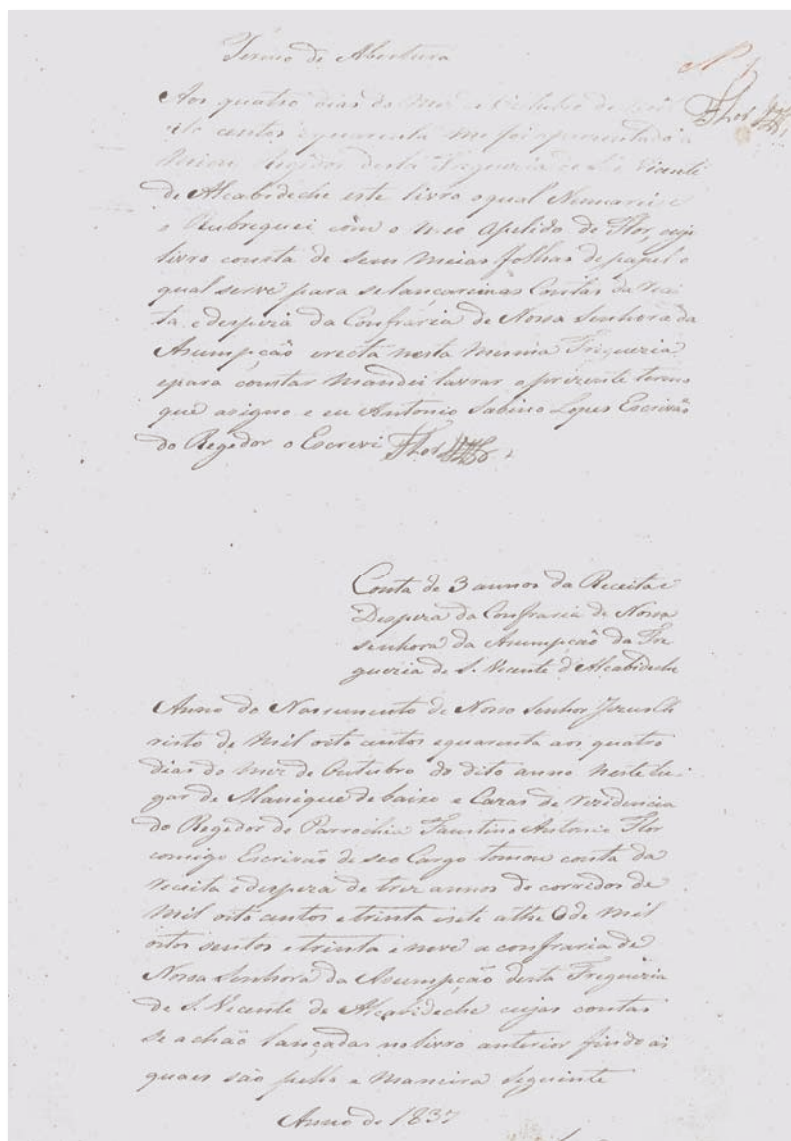 Termo de Abertura
Nº 1
Flor
Aos quatro dias do mez de Outubro de mil
oito centos equarenta me foi aprezentado a
Regedor desta Freguezia de S. Vicente
de Alcabideche este livro oqual Numarei e
Rubreguei com o meo apelido de Flor, cujo
livro consta de sem meias folhas de papel o
qual serve para selancarem as Contas da
ta edespeza da Confraria de Nossa Senhora da
Asumpção erecta nesta mesma Freguezia
epara constar mandei lavrar o prezente termo
que asigno e eu Antonio Sabino Lopes Escrivão
do Regedor o Escrevi Flor
Conta de 3 annos da Receita e
Despeza da Confraria de Nossa
senhora da Asumpcão da Fre
guezia de S. Vicente d'Alcabideche
Anno do Nassimento de Nosso Senhor Jezus Ch
risto de mil oito centos equarenta aos quatro
dias do mez de Outubro do dito anno neste lu
gar de Manique debaixo e Cazas de rezidencia
do Regedor de Parrochia Faustino Antonio Flor
comigo Escrivão de seo Cargo tomou conta da
receita edespeza de trez annos de corridos de
mil oito centos etrinta esete athe o de mil
oitos sentos etrinta e nove a confraria de
Nossa Senhora da Asumpção desta Freguezia
de S. Vicente de Alcabideche cujas contas
se achão lançadas nolivro anterior findo as
quaes são pella e maneira seguinte
Anno de 1837